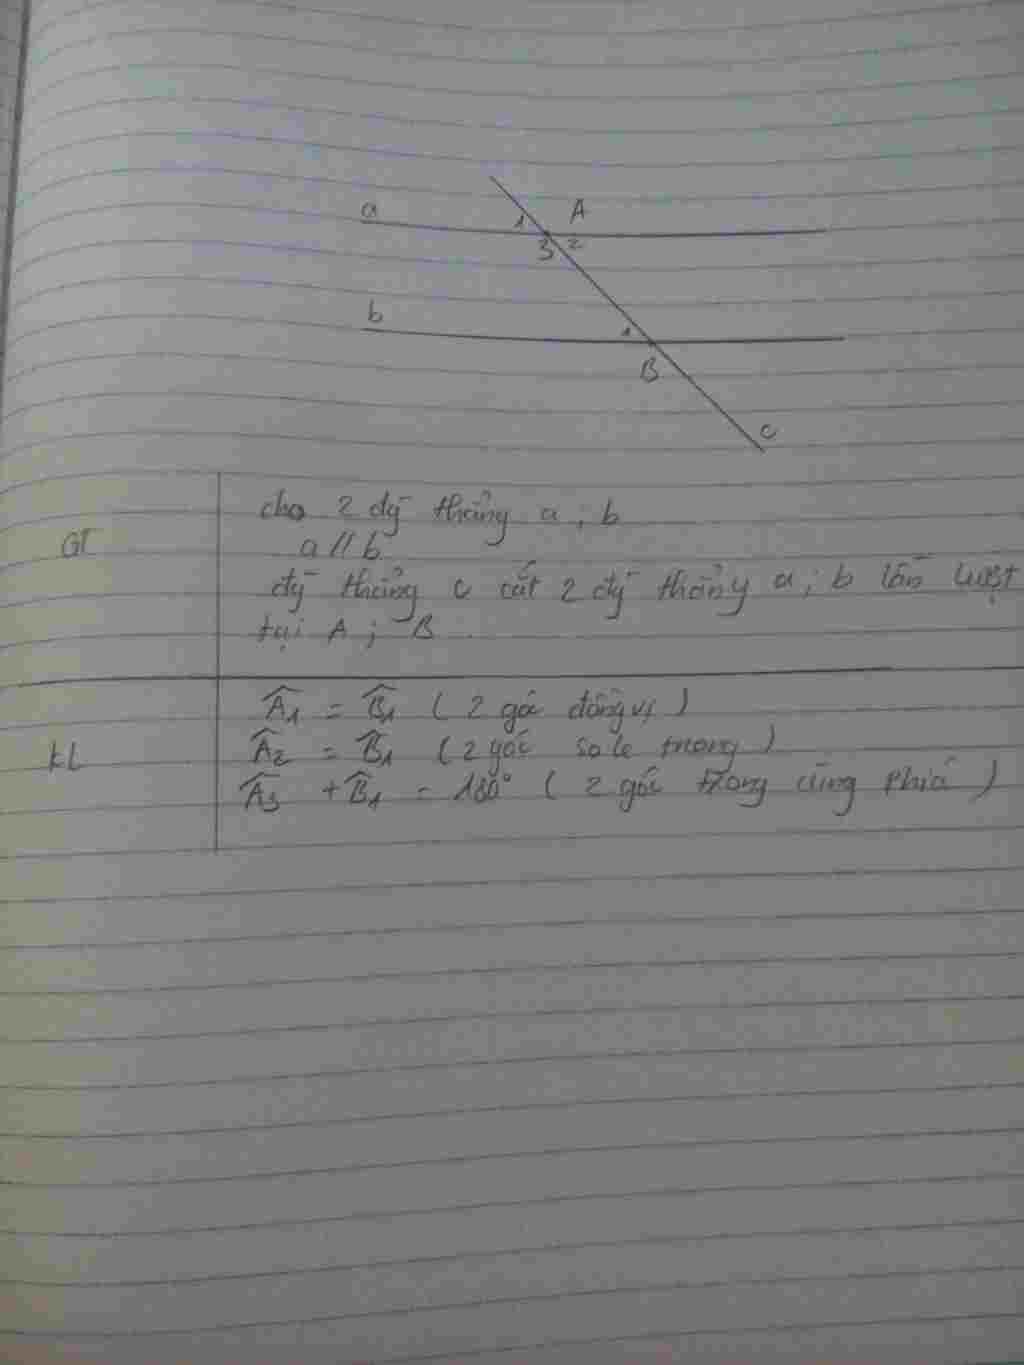 a
1 A
3 2
b
1
B
c
cho 2 đg thẳng a ; b
GT
a // b
đg thẳng c cắt 2 đg thẳng a ; b lần lượt
tại A ; B
Â1 = B̂1 ( 2 góc đồng vị )
KL
Â2 = B̂1 ( 2 góc so le trong )
Â3 + B̂1 = 180° ( 2 góc trong cùng phía )